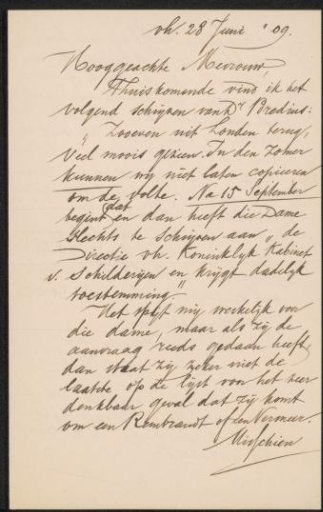 vh. 28 Juni '09.
Hooggeachte Mevrouw,
Thuiskomende vind ik het
volgend schrijven van Dr Bredius:
"Zooeven uit Londen terug,
Veel moois gezien. In den zomer
kunnen wij niet laten copieeren
om de volte. Na 15 September
begint dat en dan heeft die Dame
slechts te schrijven aan "de
Directie vh. Koninklijk Kabinet
v. Schilderijen en krijgt dadelijk
toestemming"
Het spijt mij werkelijk voor
die dame, maar als zij de
aanvraag reeds gedaan heeft,
dan staat zij zeker niet de
laatste op de lijst voor het zeer
denkbaar geval dat zij komt
om een Rembrandt of een Vermeer.
Misschien